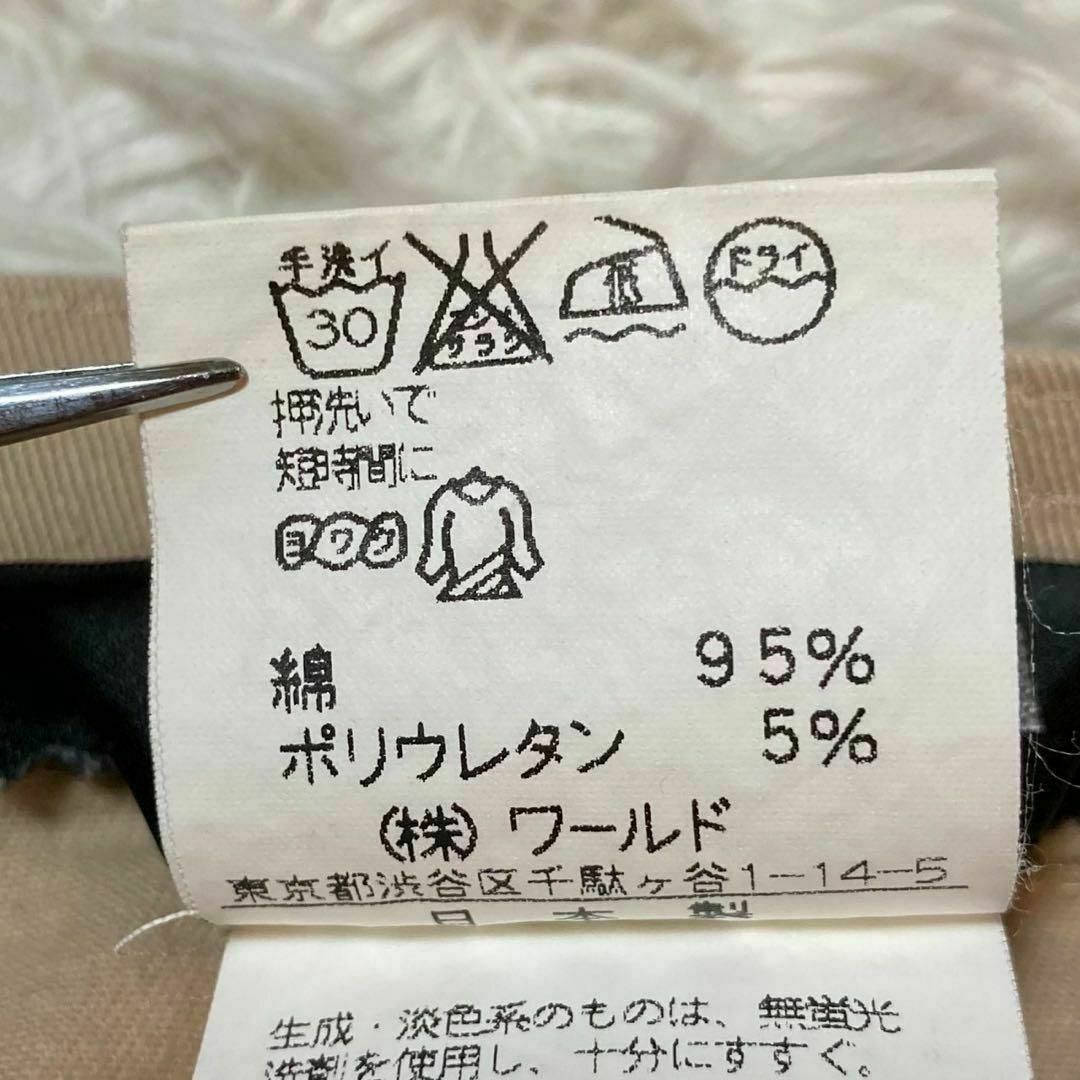 手洗イ
30
エンソ
サラシ
低
ドライ
押洗いで
短時間に
ヨワク
綿 95%
ポリウレタン 5%
(株)ワールド
東京都渋谷区千駄ヶ谷1-14-5
日本製
生成・淡色系のものは、無蛍光
洗剤を使用し、十分にすすぐ。